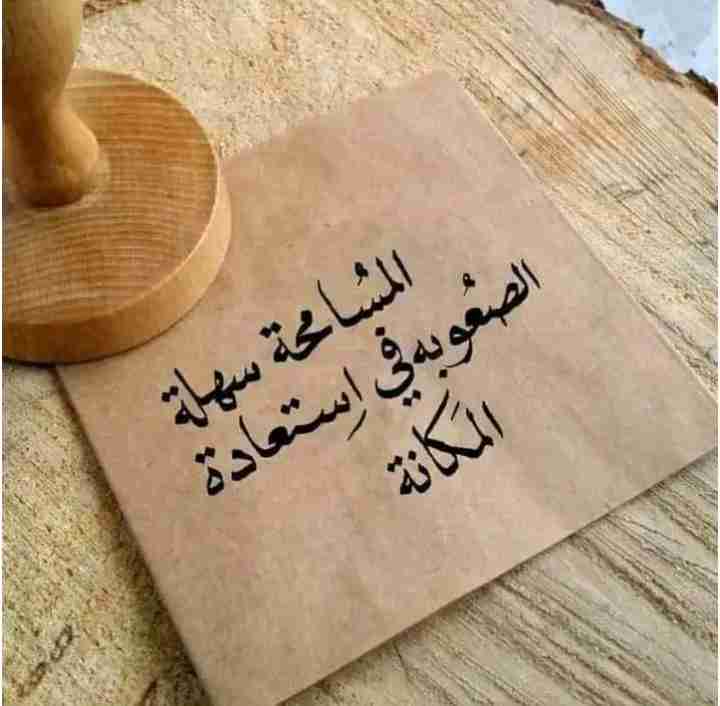 المسُامحة سهلة
الصعُوبه في إستعادة
المكَانة